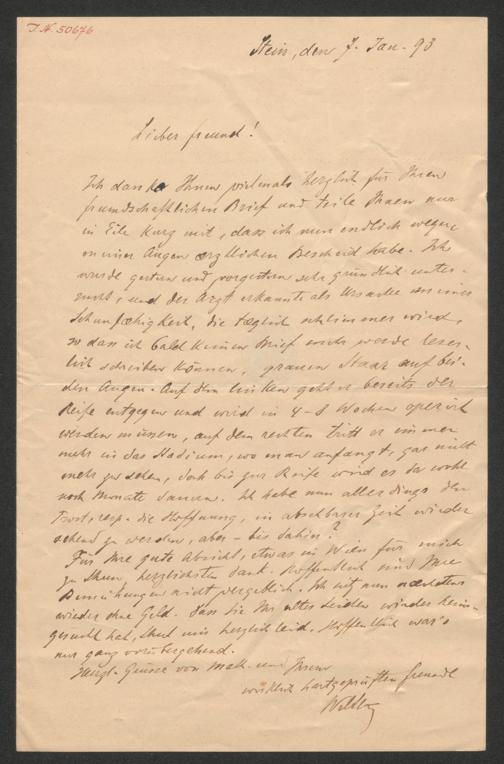 J.N. 50676
Stein, den 7. Jan. 93
Lieber freund!
Ich danke Ihnen vielmals herzlich für Ihren
freundschaftlichen Brief und teile Ihnen nur
in Eile kurz mit, dass ich nun endlich wegen
meiner Augen ærztlichen Bescheid habe. Ich
wurde gestern und vorgestern sehr gründlich unter-
sucht, und der Arzt erkannte als Ursache meiner
Sehunfæhigkeit, die tæglich schlimmer wird,
so dass ich bald keinen Brief mehr werde leser-
lich schreiben können, grauen Staar auf bei-
den Augen. Auf dem linken geht er bereits der
Reife entgegen und wird in 4-8 Wochen operirt
werden müssen, auf dem rechten tritt er immer
mehr in das Stadium, wo man anfangt, gar nicht
mehr zu sehen, doch bis zur Reife wird es da wohl
noch Monate dauern. Ich habe nun allerdings den
Trost, resp. die Hoffnung, in absehbarer Zeit wieder
sehend zu werden, aber – bis dahin?
Für Ihre gute Absicht, etwas in Wien für mich
zu thun, herzlichsten Dank. Hoffentlich sind Ihre
Bemühungen nicht vergeblich. Ich sitz nun næchstens
wieder ohne Geld. Dass Sie Ihr altes Leiden wieder heim-
gesucht hat, thut mir herzlich leid. Hoffentlich war's
nur ganz vorübergehend.
Herzl. Grüsse von und Ihrem
wirklich hartgeprüften freunde